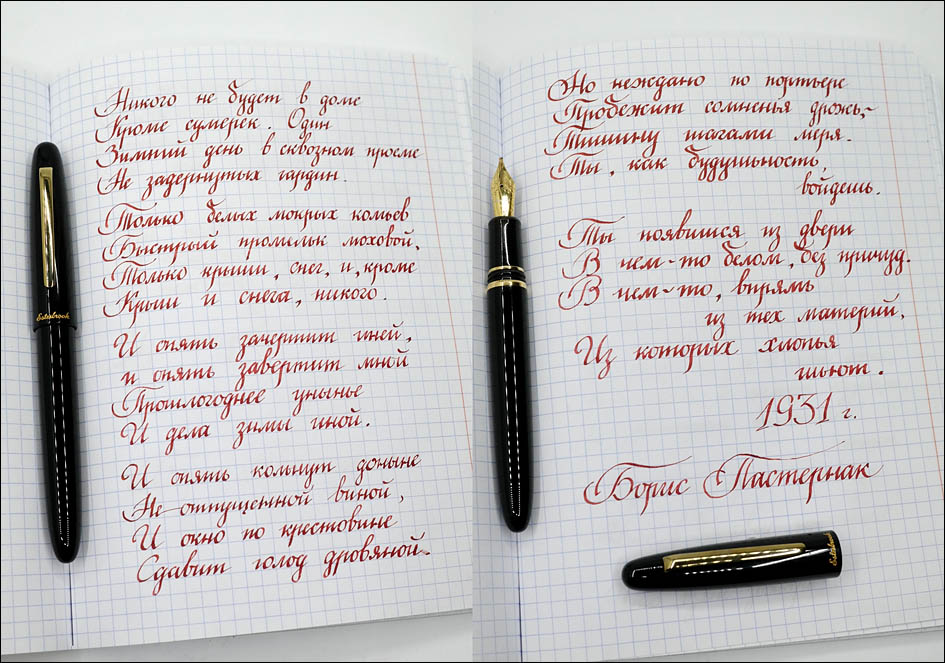 Никого не будет в доме
Кроме сумерек. Один
Зимний день в сквозном проеме
Не задернутых гардин.
Только белых мокрых комьев
Быстрый промельк моховой,
Только крыши, снег, и, кроме
Крыш и снега, никого.
И опять зачертит иней,
и опять завертит мной
Прошлогоднее унынье
И дела зимы иной.
И опять кольнут доныне
Не отпущенной виной,
И окно по крестовине
Сдавит голод дровяной.
Estabrook
Но неждано по портьере
Пробежит сомненья дрожь,-
Тишину шагами меря.
Ты, как будущность,
войдешь.
Ты появишся из двери
В чем-то белом, без причуд.
В чем-то, впрямь
из тех материй,
Из которых хлопья
шьют.
1931 г.
Борис Пастернак
Estabrook